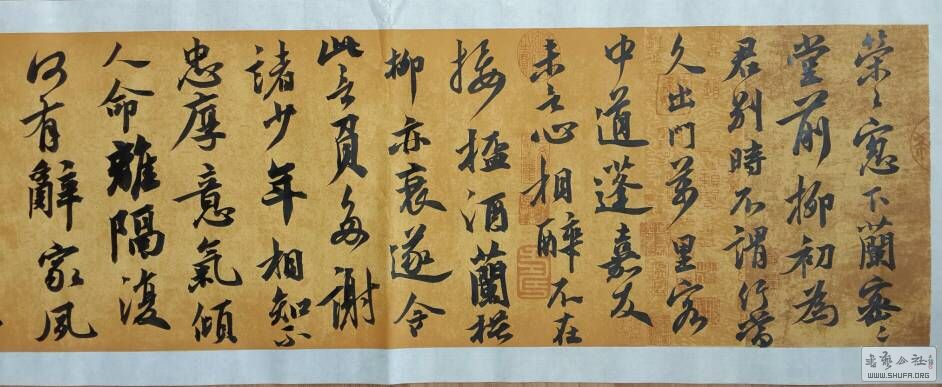 榮〻窓下蘭密〻
堂前柳初為
君別時不謂行當
久出門萬里客
中道逢嘉友
未言心相醉不在
接桮酒蘭枯
柳亦衰遂令
此言負多謝
諸少年相知不
忠厚意氣傾
人命離隔復
何有辭家夙
書藝公社
WWW.SHUFA.ORG